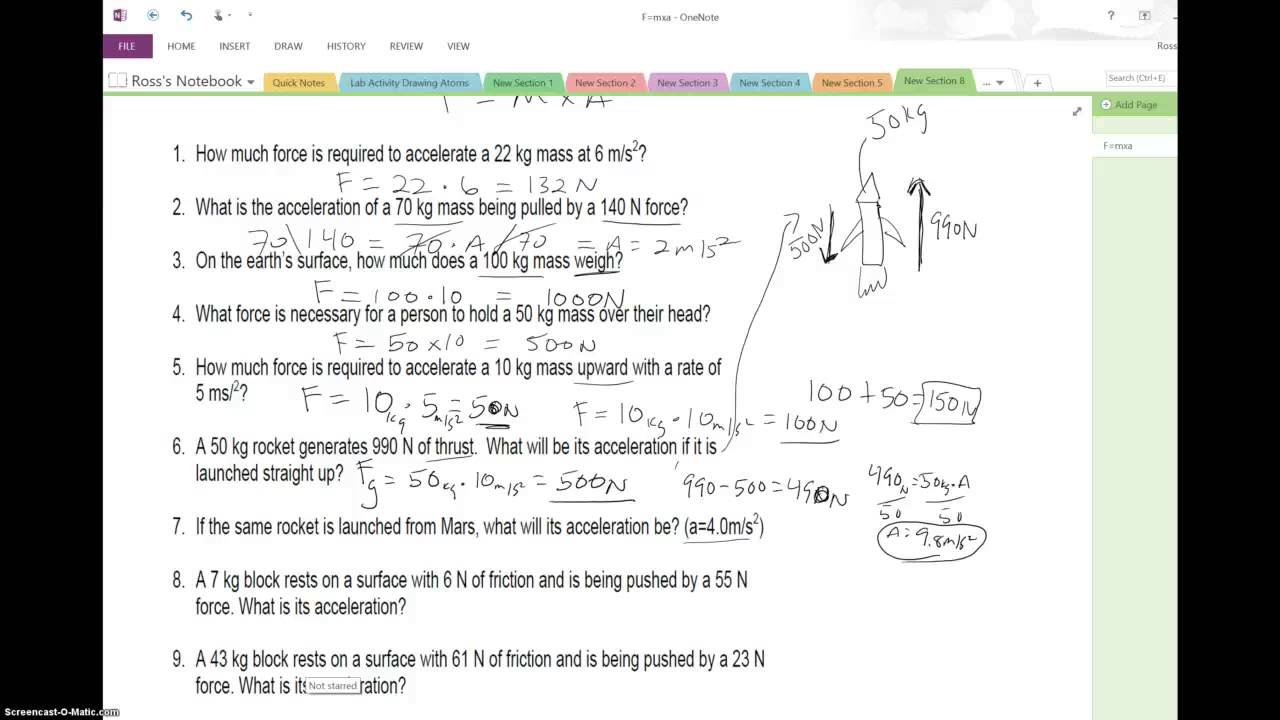 F=mxa - OneNote
?
Ross
FILE HOME INSERT DRAW HISTORY REVIEW VIEW
Ross's Notebook Quick Notes Lab Activity Drawing Atoms New Section 1 New Section 2 New Section 3 New Section 4 New Section 5 New Section 8 ... + Search (Ctrl+E)
Add Page
F=mxa
F = M x A
50 kg
1. How much force is required to accelerate a 22 kg mass at 6 m/s²?
F = 22 · 6 = 132 N
2. What is the acceleration of a 70 kg mass being pulled by a 140 N force?
500N
990N
70\140 = 70 · A /70 = A = 2 m/s²
3. On the earth's surface, how much does a 100 kg mass weigh?
F = 100 · 10 = 1000N
4. What force is necessary for a person to hold a 50 kg mass over their head?
F = 50 x 10 = 500N
5. How much force is required to accelerate a 10 kg mass upward with a rate of
5 ms/²?
F = 10kg · 5m/s² = 50N
F = 10kg · 10m/s² = 100N
100 + 50 = 150N
6. A 50 kg rocket generates 990 N of thrust. What will be its acceleration if it is
launched straight up?
Fg = 50kg · 10m/s² = 500N
990 - 500 = 490N
490N = 50kg · A
50 50
A = 9.8m/s²
7. If the same rocket is launched from Mars, what will its acceleration be? (a=4.0m/s²)
8. A 7 kg block rests on a surface with 6 N of friction and is being pushed by a 55 N
force. What is its acceleration?
9. A 43 kg block rests on a surface with 61 N of friction and is being pushed by a 23 N
force. What is its ration?
Not starred
Screencast-O-Matic.com